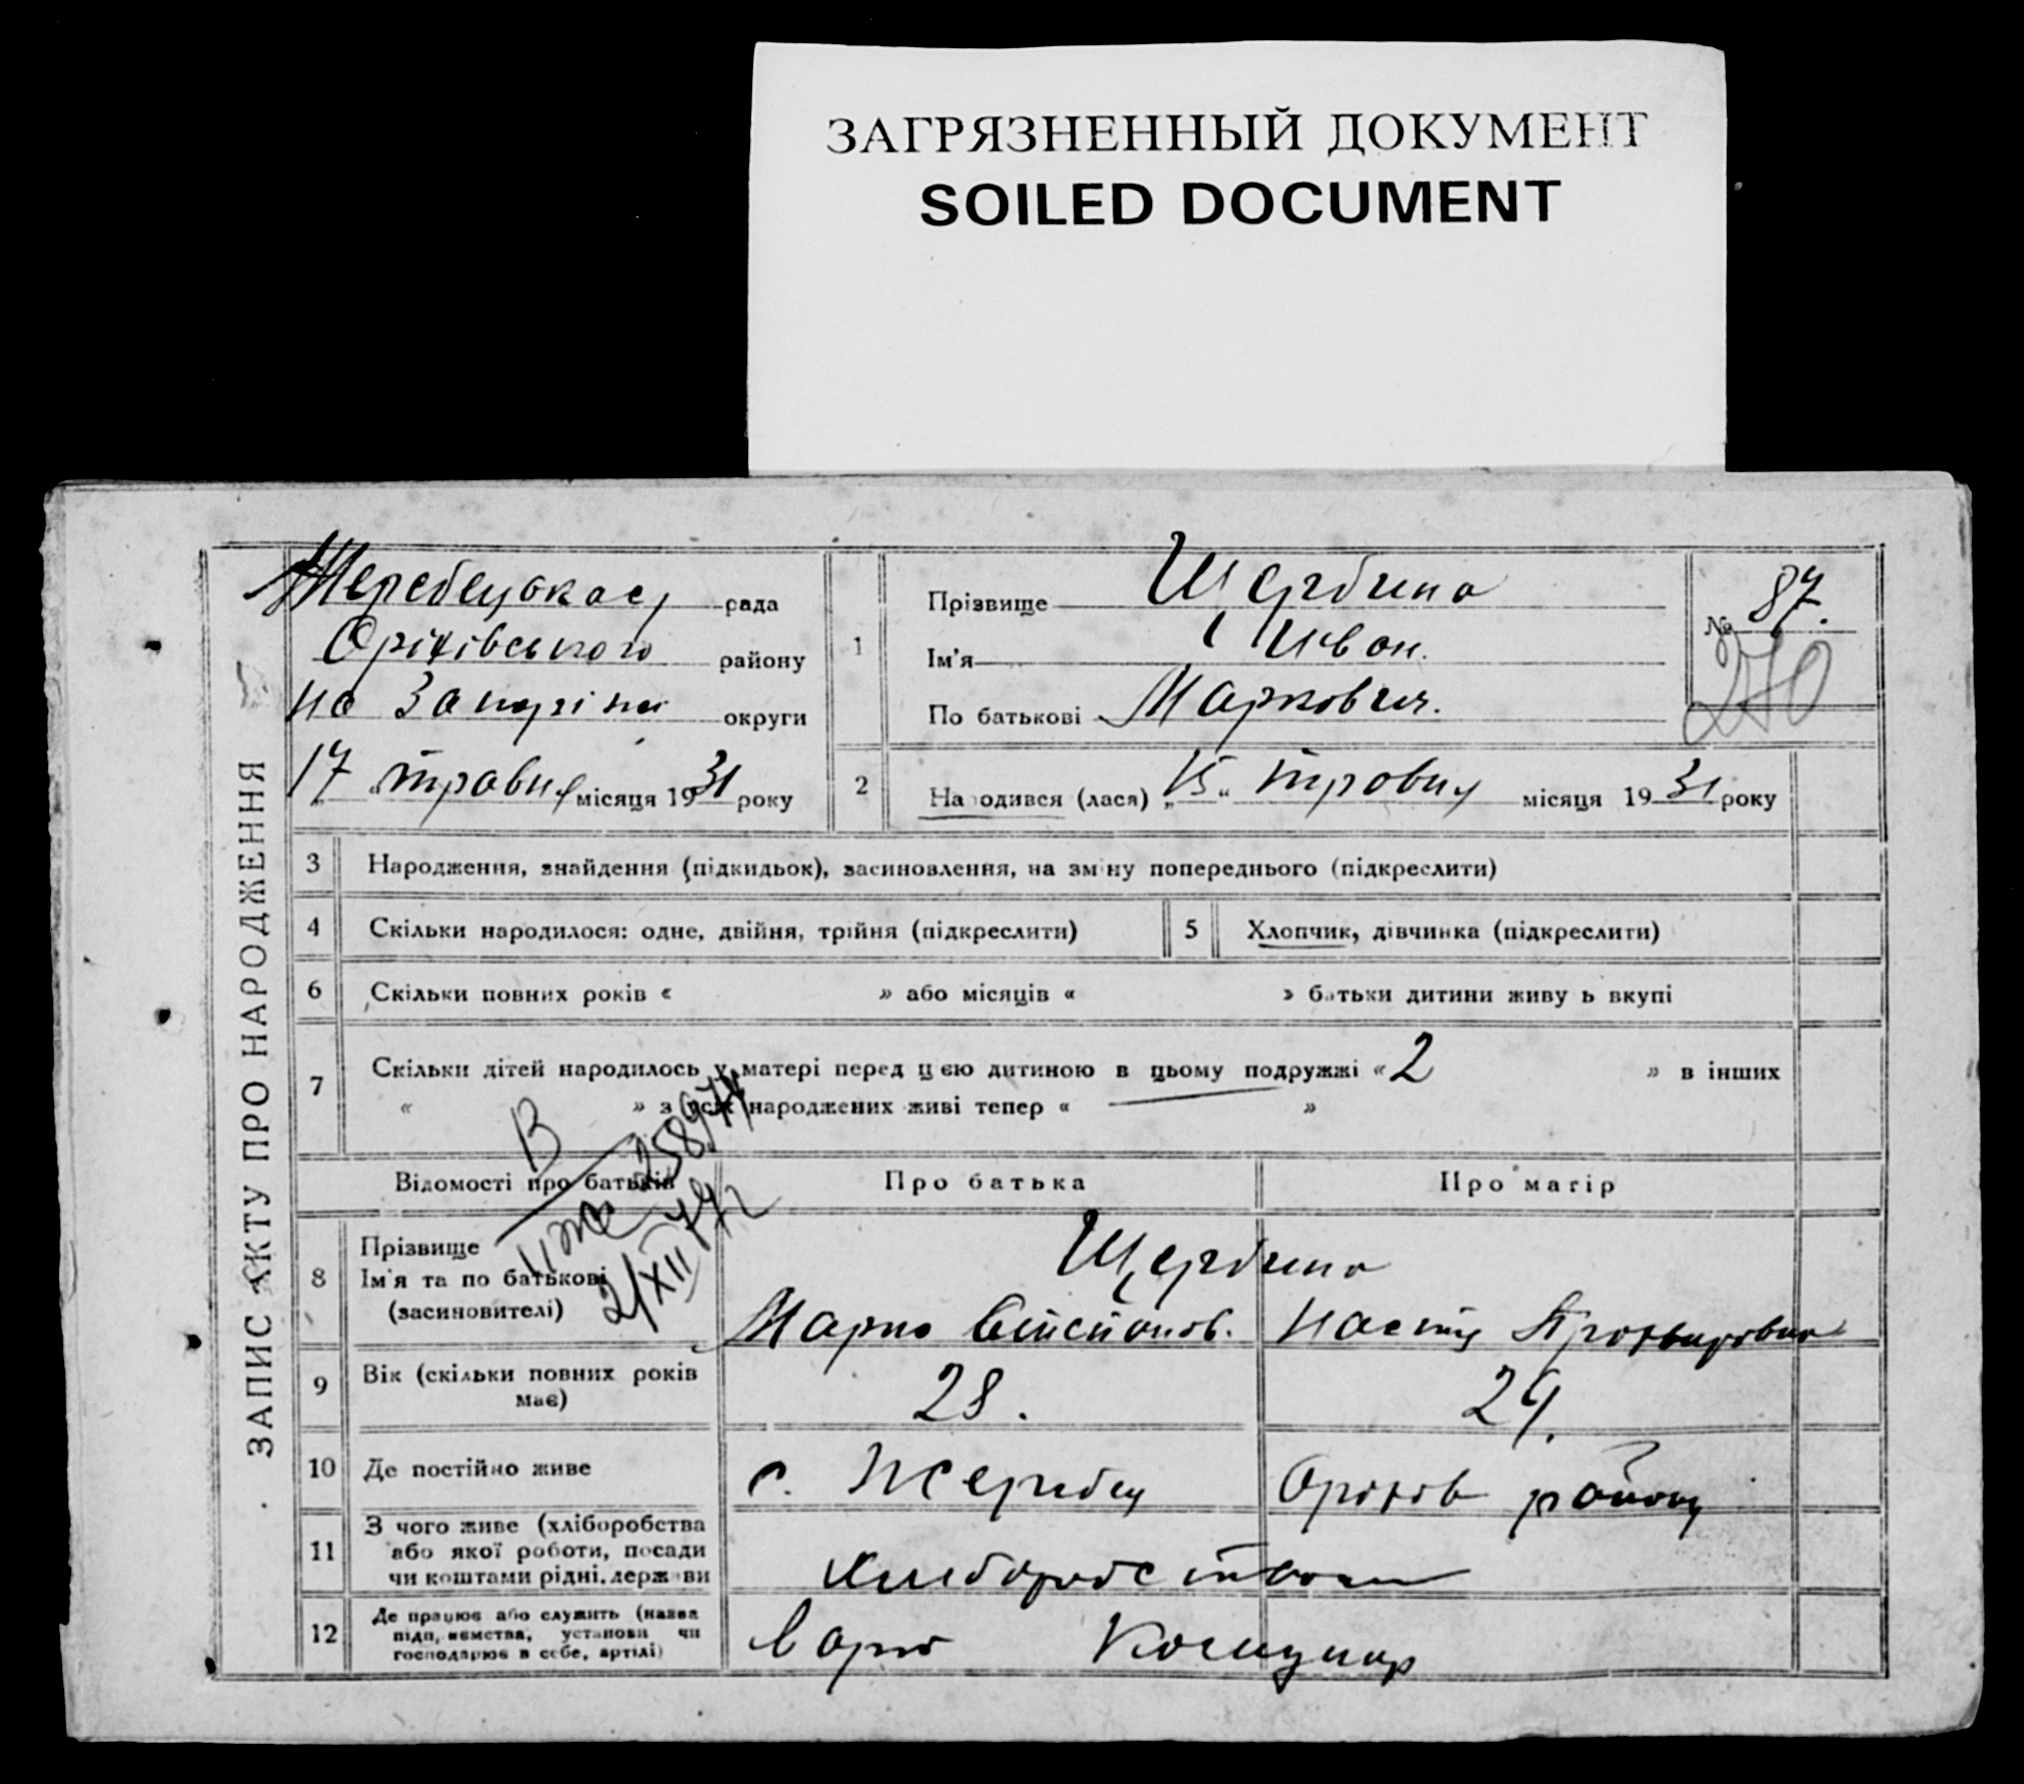 ЗАГРЯЗНЕННЫЙ ДОКУМЕНТ
SOILED DOCUMENT
ЗАПИС АКТУ ПРО НАРОДЖЕННЯ
Жеребецькає рада
Оріхівського району
на Запоріжжі округи
17 травня місяця 1931 року
1
Прізвище Щербина
Ім'я Иван.
По батькові Маркович.
№ 87.
270
2 Народився (лася) „15“ травня місяця 1931 року
3 Народження, знайдення (підкидьок), засиновлення, на зміну попереднього (підкреслити)
4 Скільки народилося: одне, двійня, трійня (підкреслити)
5 Хлопчик, дівчинка (підкреслити)
6 Скільки повних років « » або місяців « » батьки дитини живуть вкупі
7 Скільки дітей народилось у матері перед цією дитиною в цьому подружжі «2 » в інших
« » з усіх народжених живі тепер « — »
Відомості про батьків
Про батька
Про матір
В
II ЖС 258974
2/XII 77
8 Прізвище
Ім'я та по батькові
(засиновителі)
Щербина
Марко Степанов.
Настя
9 Вік (скільки повних років
має)
28.
29.
10 Де постійно живе
с. Жеребец
Оріхів району
11 З чого живе (хліборобства
або якої роботи, посади
чи коштами рідні, держави
хліборобством
12 Де працює або служить (назва
підприємства, установи чи
господарює в себе, артілі)